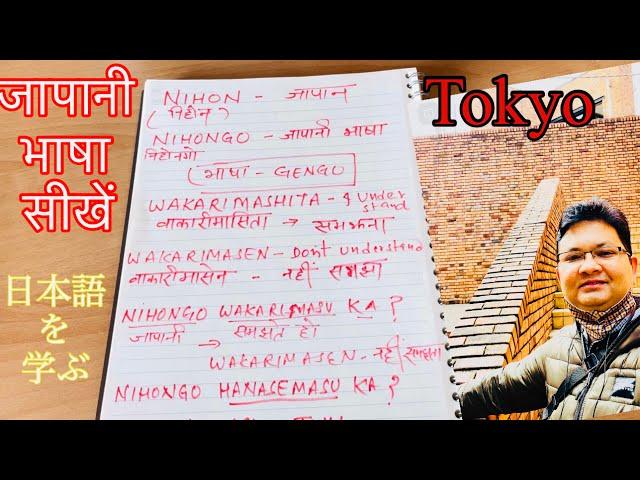 जापानी
भाषा
सीखें
日本語
を
学ぶ
Tokyo
NIHON - जापान
(निहोन)
NIHONGO - जापानी भाषा
निहोनगो
(भाषा - GENGO
WAKARIMASHITA - I understand
वाकारीमासिता → समझना
WAKARIMASEN - Don't understand
वाकारीमासेन - नहीं समझा
NIHONGO WAKARIMASU KA ?
जापानी → समझते हो
WAKARIMASEN - नहीं समझता
NIHONGO HANASEMASU KA ?